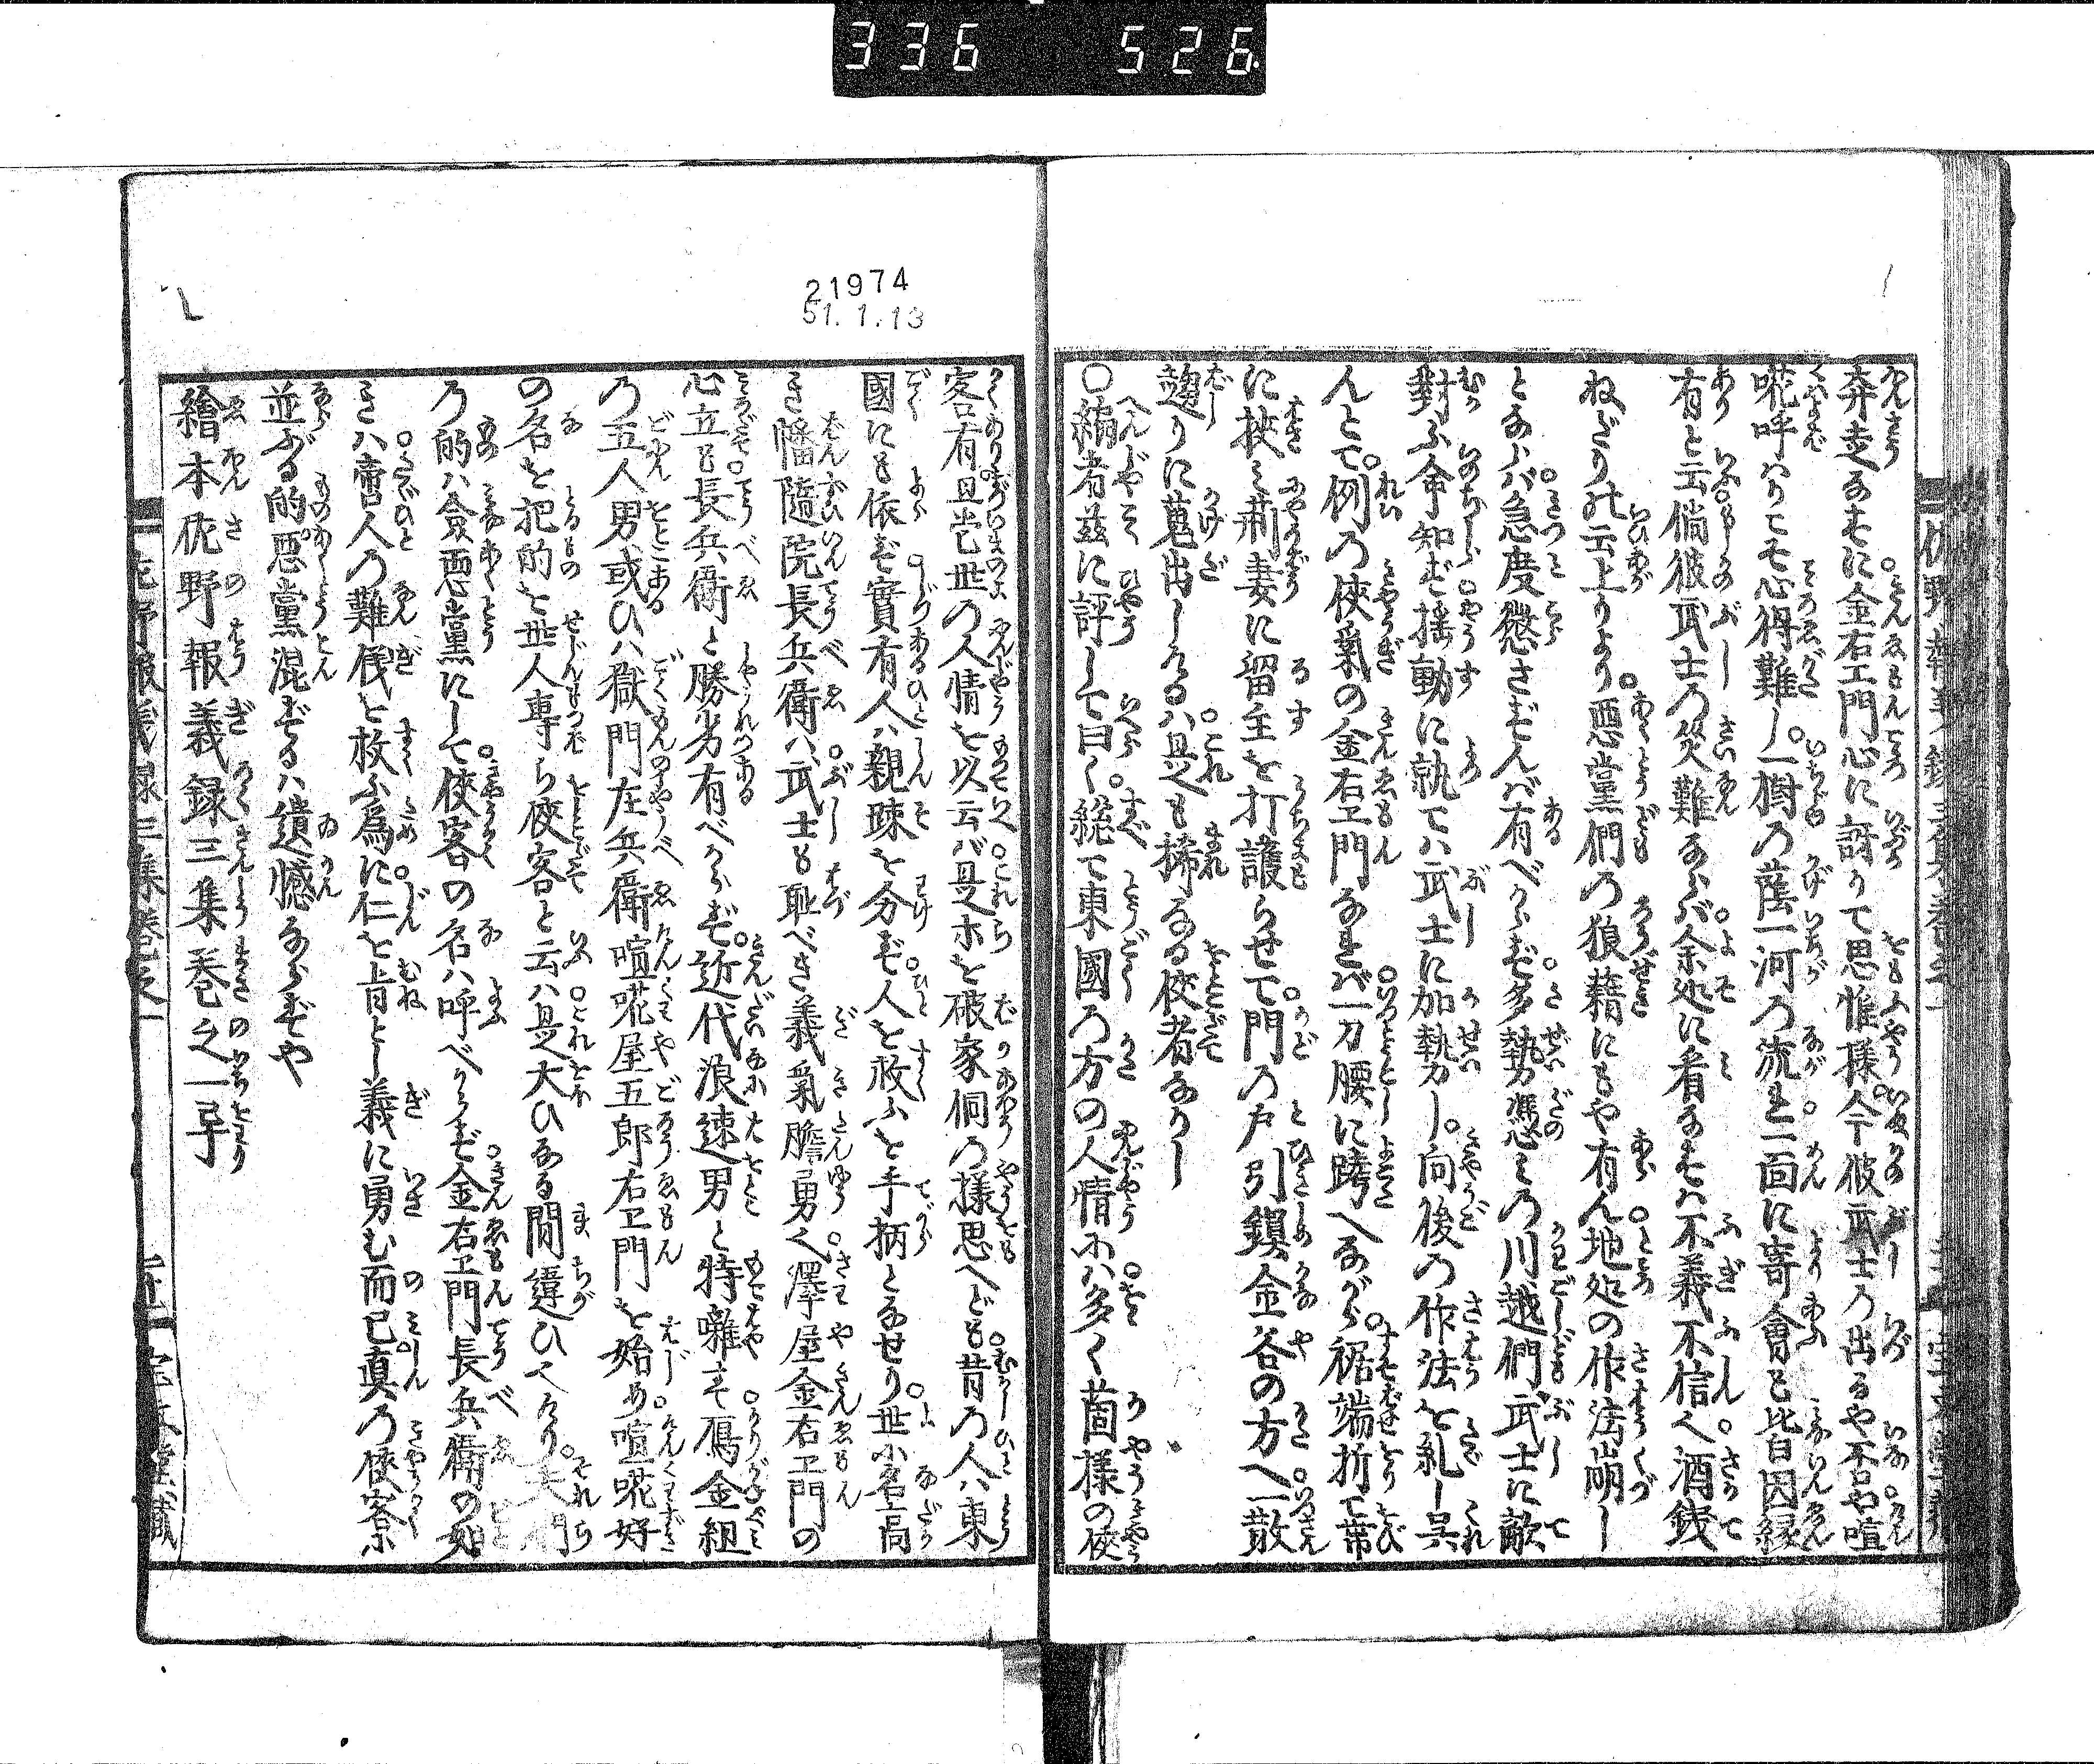 336 526
奔走なすに金右エ門心に訝りて思惟様今彼武士の出るや否や喧
嘩呼はりこそ心得難し一樹の蔭一河の流れ一面に寄會も皆因縁
有と云倘彼武士の災難ならバ余処に看なすハ不義不信也酒銭
ねだりの云上りより悪黨們の狼藉にもや有ん地処の作法崩し
となれバ急度懲さずんバ有べからず多勢憑みの川越們武士に敵
對ふ命知ず揺動に執てハ武士に加勢し向後の作法を糺し呉
んとて例の侠氣の金右エ門なれバ一刀腰に跨へながら裾端折て帯
に挾み荊妻に留主を打護らせて門の戸引鎖金谷の方へ一散
趨りに蒐出しけるハ是も稀なる侠者なりし
〇編者茲に評して曰く総て東國の方の人情ハ多く箇様の侠
客有且当世の人情を以云バ是ホを破家侗の様思へども昔の人ハ東
國にも依ず實有人ハ親疎を分ず人を救ふを手柄となせり世に名高
き幡隨院長兵衛ハ武士も恥べき義氣膽勇也澤屋金右エ門の
心立も長兵衛と勝劣有べからず近代浪速男と特囃す鴈金組
の五人男或ひハ獄門庄兵衛喧嘩屋五郎右エ門を始め喧嘩好
の名を把的を世人専ら侠客と云ハ是大ひなる間違ひ也けり夫們
の的ハ僉悪黨にして侠客の名ハ呼べからず金右エ門長兵衛の如
きハ啻人の難儀を救ふ為に仁を旨とし義に勇む而已真の侠客に
並ぶる的悪黨混ずるハ遺憾ならずや
繪本佐野報義録三集巻之一畢
21974
51.1.13